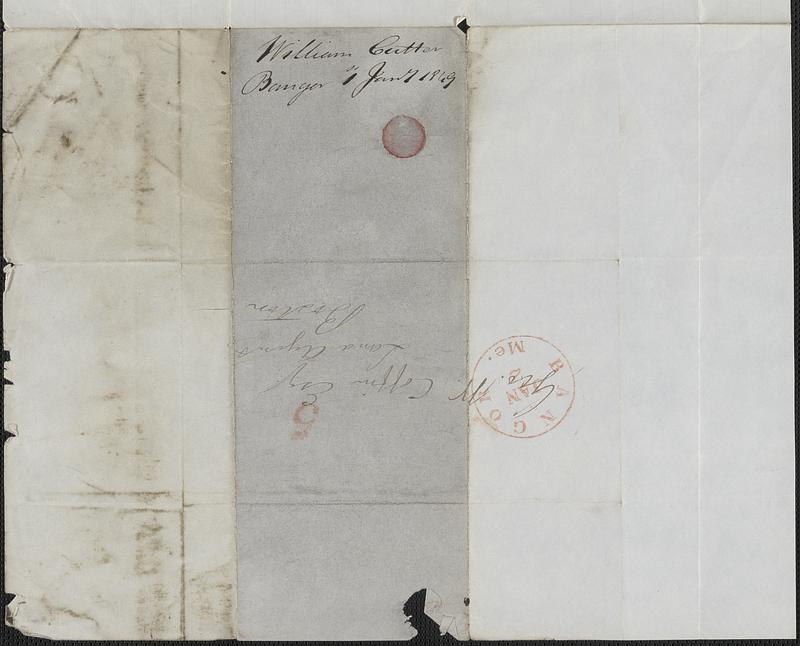 William Cutter
Bangor 7 Jany 1849
Geo. W. Coffin Esq
Land Agent
Boston
5
BANGOR
JAN
8
Me.